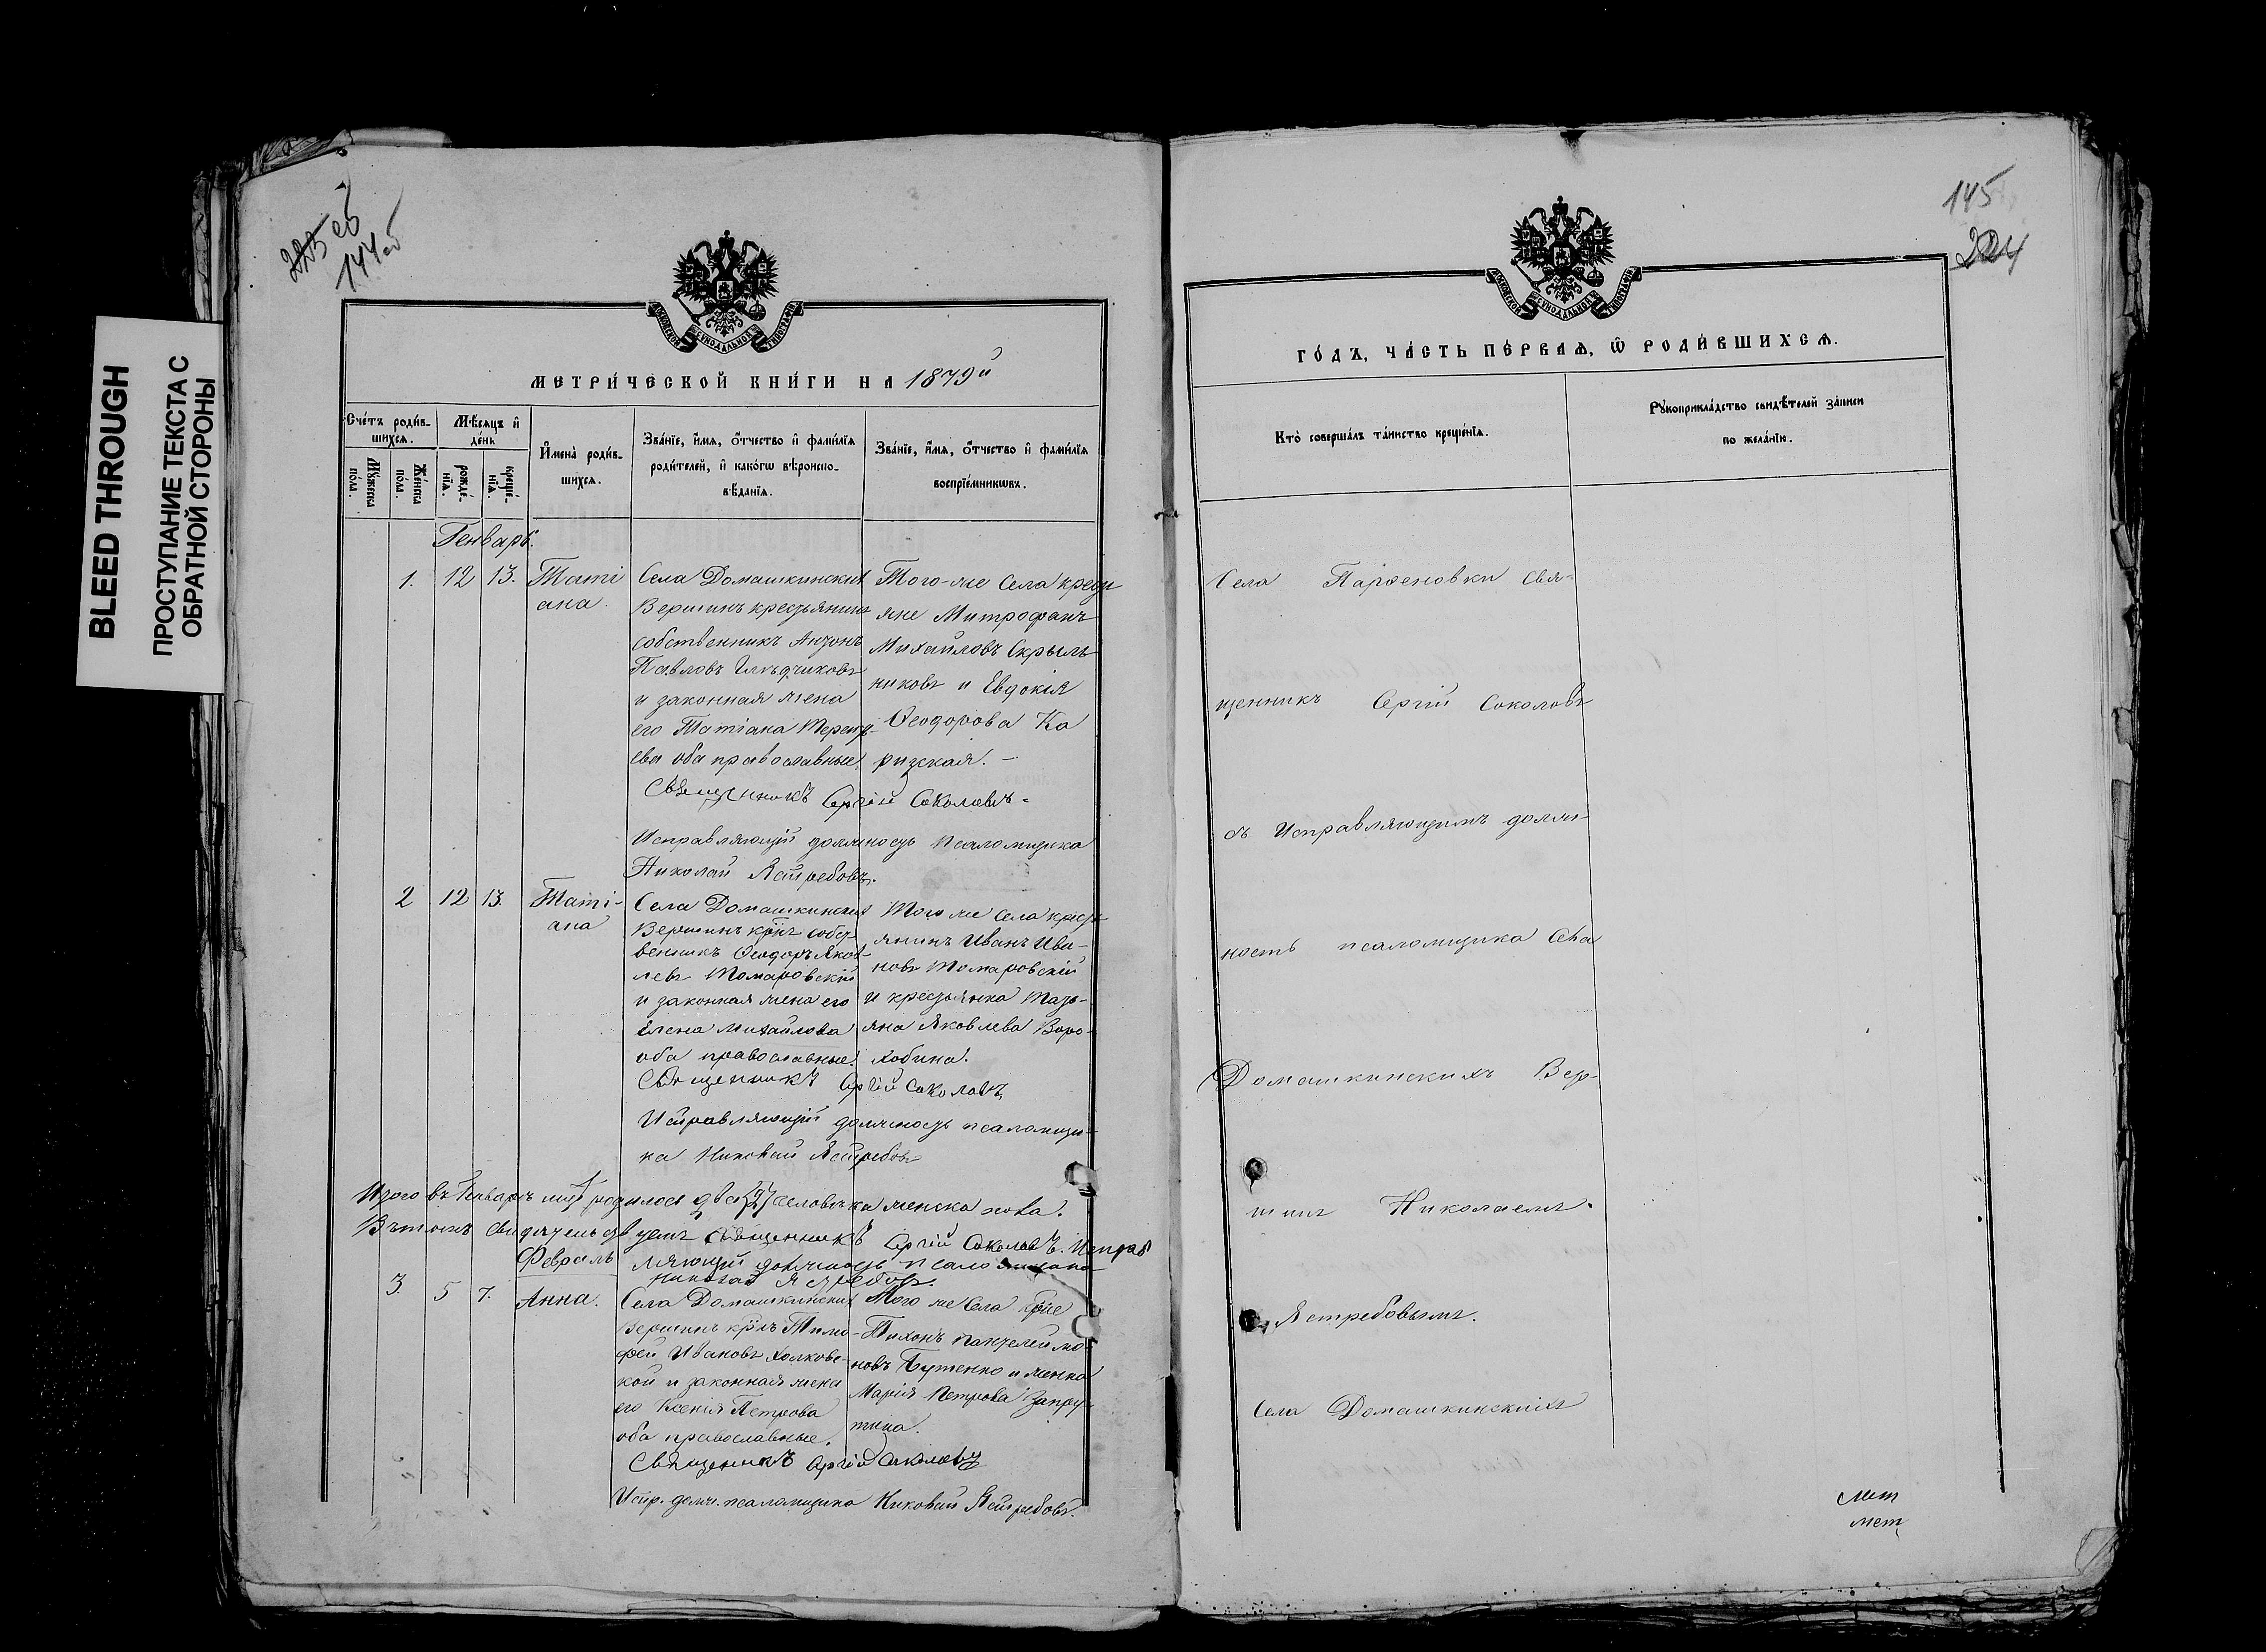 BLEED THROUGH
ПРОСТУПАНИЕ ТЕКСТА С
ОБРАТНОЙ СТОРОНЫ
144 об
МЕТРИ́ЧЕСКОЙ КНИ́ГИ НА 1879й
Сче́тъ роди́в-
шихся.
Мѣ́сяцъ и
де́нь
Мꙋ́жеска
по́ла.
Же́нска
по́ла.
рожде́-
нїѧ.
креще́-
нїѧ.
И҆мена̀ роди́в-
шихсѧ.
Зва́нїе, и҆́мѧ, ѻ҆́тчество и҆ фами́лїѧ
роди́телей, и҆ како́гѡ вѣроиспо-
вѣ́данїѧ.
Зва́нїе, и҆́мѧ, ѻ҆́тчество и҆ фами́лїѧ
воспрїе́мникѡвъ.
Генварь.
1. 12 13. Таті
ана.
Села Домашкинскихъ
Вершинъ крестьянинъ
собственникъ Антонъ
Павловъ
и законная жена
его Татіана Терент-
ева оба православные.
Того-же села крест
яне Митрофанъ
Михайловъ Скрыль
никовъ и Евдокія
Ѳеодорова Ка
ризская. –
Священникъ Сергій Соколовъ
Исправляющій должность псаломщика
Николай Ястребовъ.
2 12 13. Таті-
ана
Села Домашкинскихъ
Вершинъ крнъ собст
венникъ Ѳеодоръ Яков
левъ Томаровскій
и законная жена его
Елена Михайлова
оба православные.
Того же села крест
янинъ Иванъ Ива-
новъ Томаровскій
и крестьянка Тать-
яна Яковлева Воро-
хобина.
Священникъ Сергій Соколовъ
Исправляющій должность псаломщи-
ка Николай Ястребовъ
Итого въ Генварѣ мцѣ родилося два /2/ человѣка женска пола.
Въ томъ свидѣтельствуемъ Священникъ Сергій Соколовъ. Исправ
ляющій должность псаломщика
Николай Ястребовъ.
Февраль
3. 5 7. Анна.
Села Домашкинскихъ
Вершинъ крнъ Тимо-
фей Ивановъ Холковс-
кой и законная жена
его Ксенія Петрова
оба православные.
Того же села крне
Тихонъ Пантелеймо-
новъ Бутенко и женка
Марія Петрова Запру-
тина.
Священникъ Сергій Соколовъ
Испр. долж. псаломщика Николай Ястребовъ.
145
224
ГО́ДЪ, ЧА́СТЬ ПЕ́РВАѦ, Ѽ РОДИ́ВШИХСѦ.
Кто̀ соверша́лъ та́инство креще́нїѧ.
Рꙋкоприкла́дство свидѣ́телей за́писи
по жела́нїю.
Села Парѳеновки Свя-
щенникъ Сергій Соколовъ
съ Исправляющимъ долж-
ность псаломщика Села
Домашкинскихъ Вер-
шинъ Николаемъ.
Ястребовымъ.
Села Домашкинскихъ
мет
мет